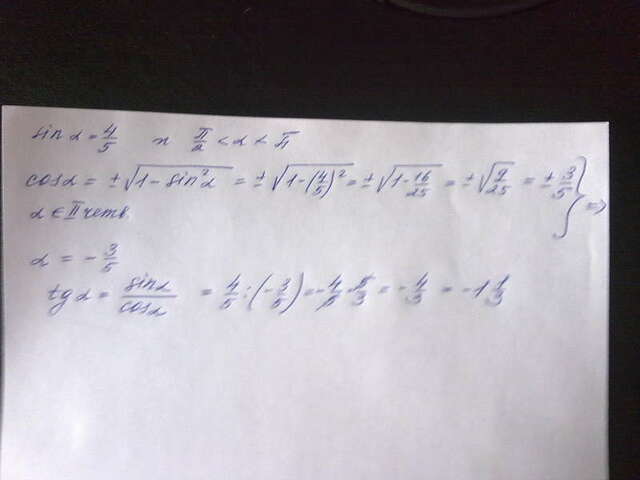 sin α = 4/5 и π/2 < α < π
cos α = ± √(1 - sin² α) = ± √(1 - (4/5)²) = ± √(1 - 16/25) = ± √(9/25) = ± 3/5 } ⇒
α ∈ II четв.
α = - 3/5
tg α = sin α / cos α = 4/5 : (- 3/5) = - 4/5 · 5/3 = - 4/3 = - 1 1/3